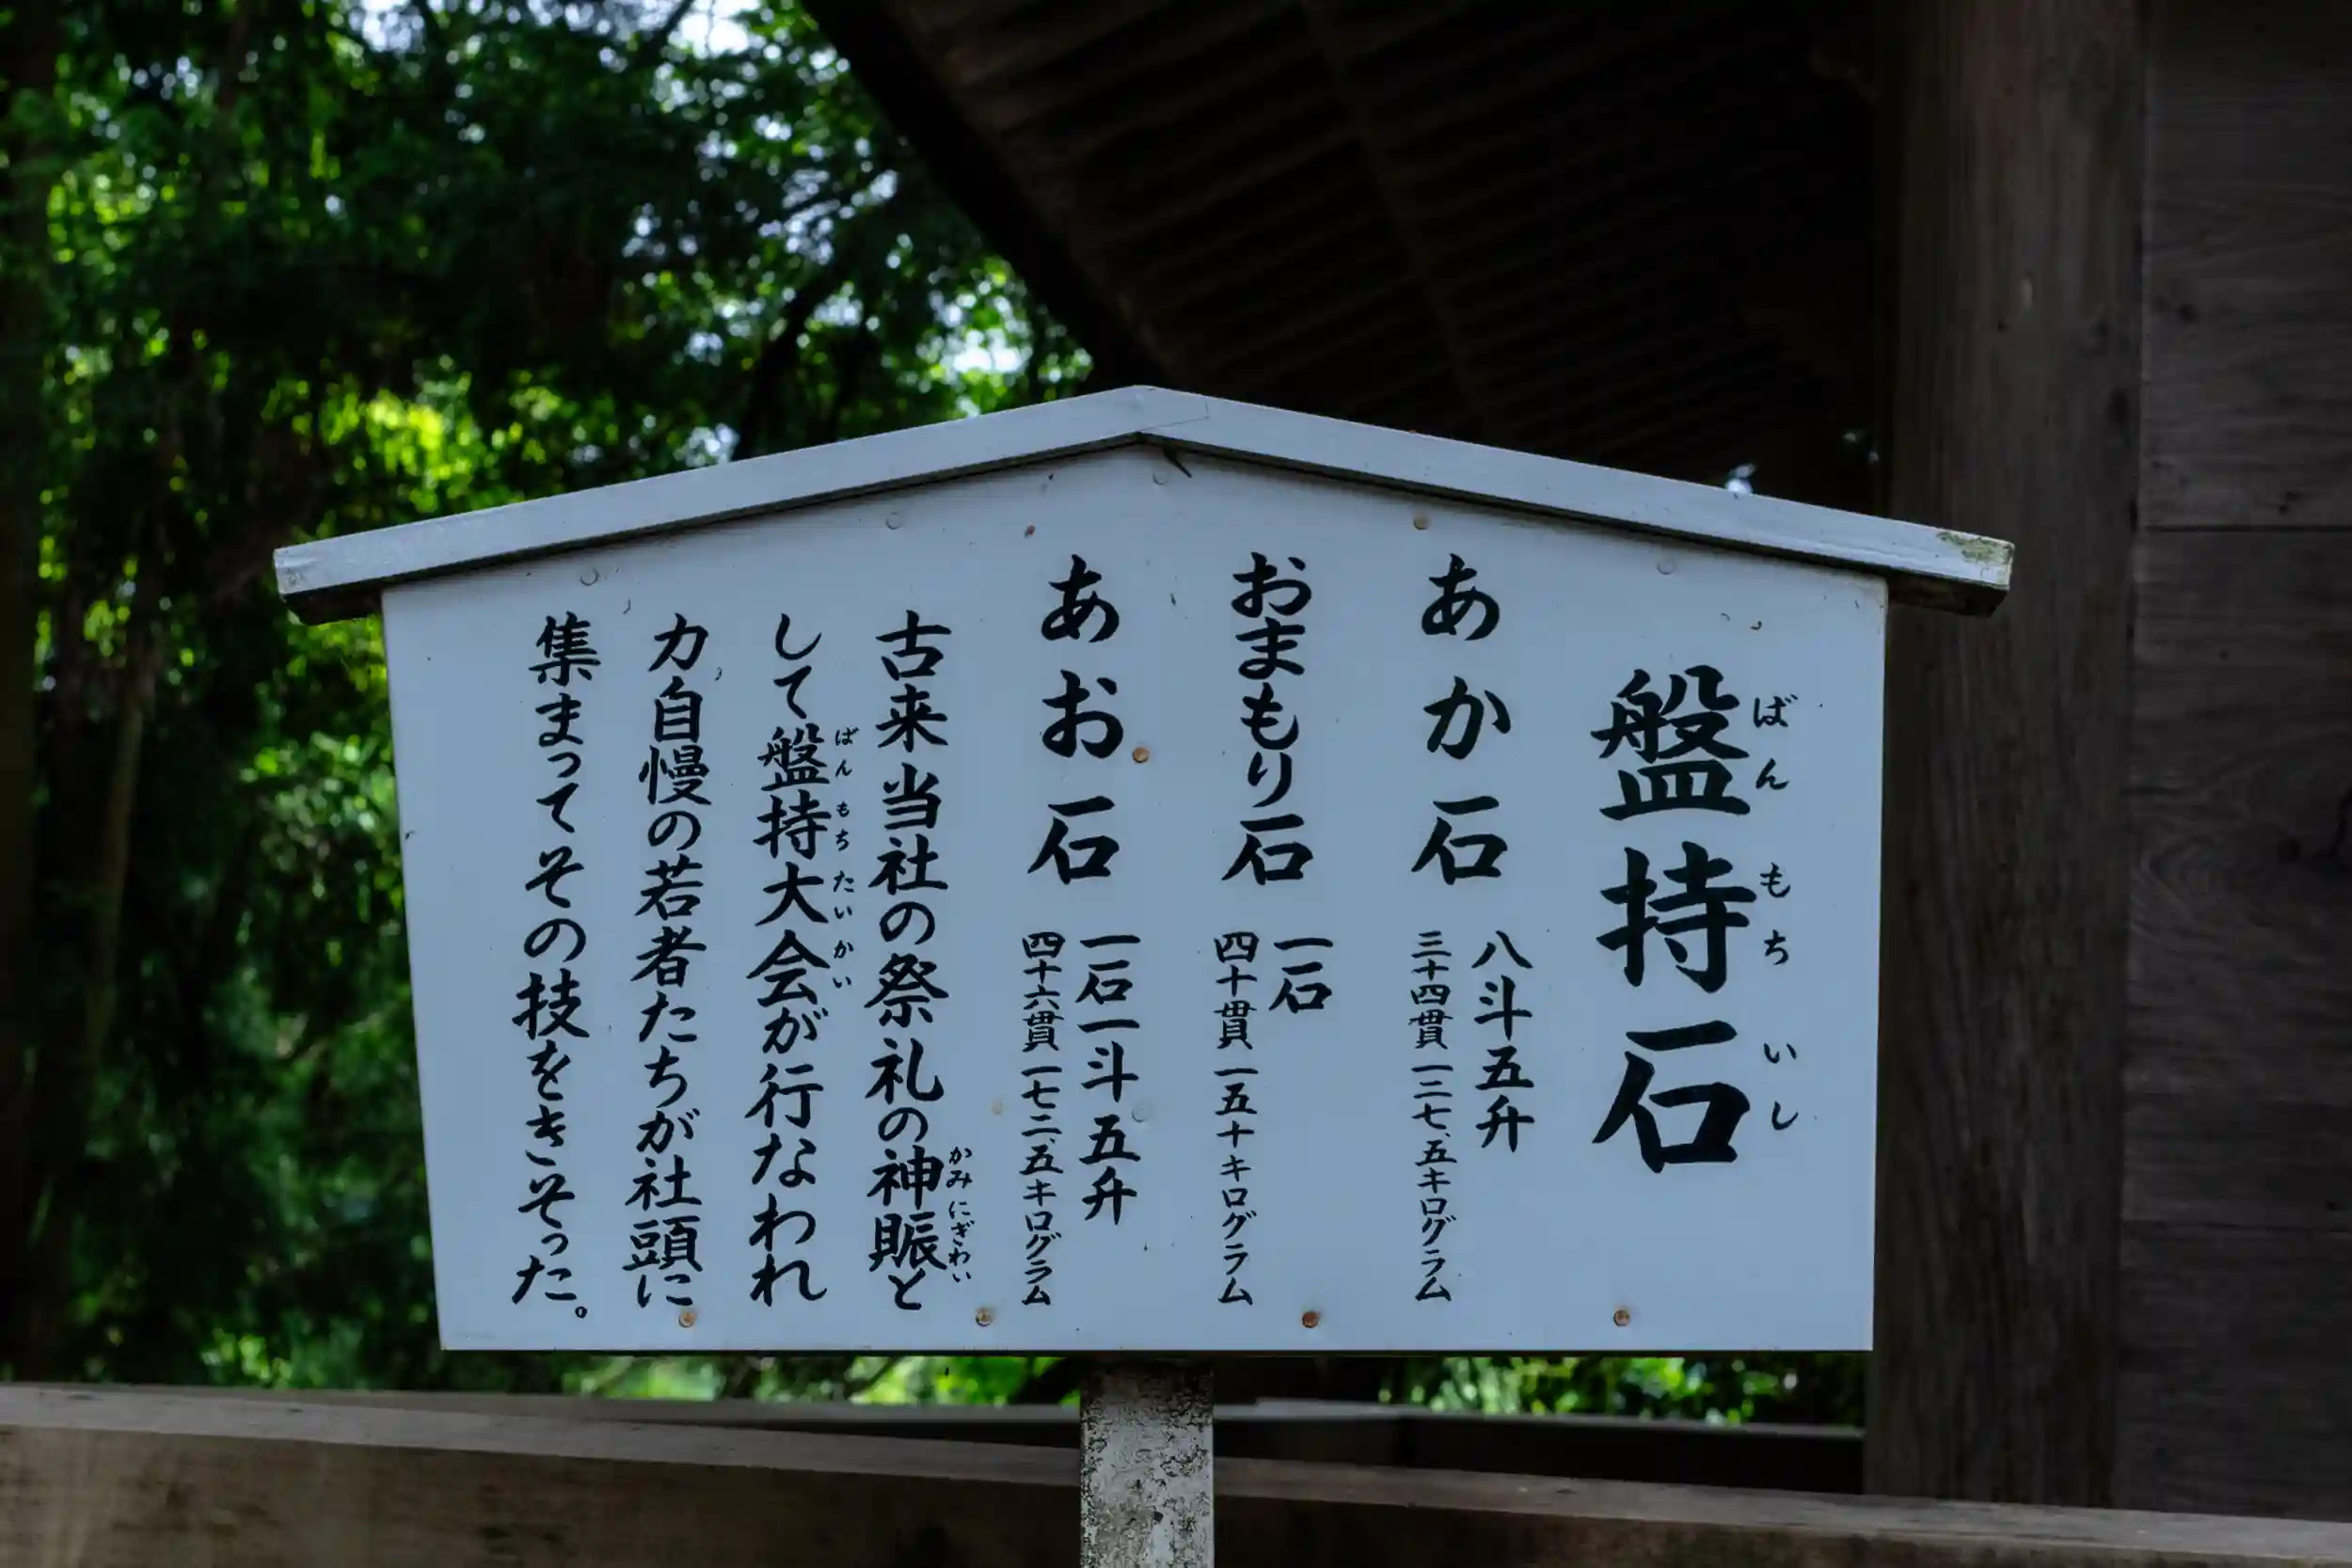 盤持石
ばんもちいし
あか石
八斗五升
三十四貫 一二七、五キログラム
おまもり石
一石
四十貫 一五十キログラム
あお石
一石一斗五升
四十六貫 一七二、五キログラム
古来当社の祭礼の神賑と
かみにぎわい
して盤持大会が行なわれ
ばんもちたいかい
力自慢の若者たちが社頭に
集まってその技をきそった。